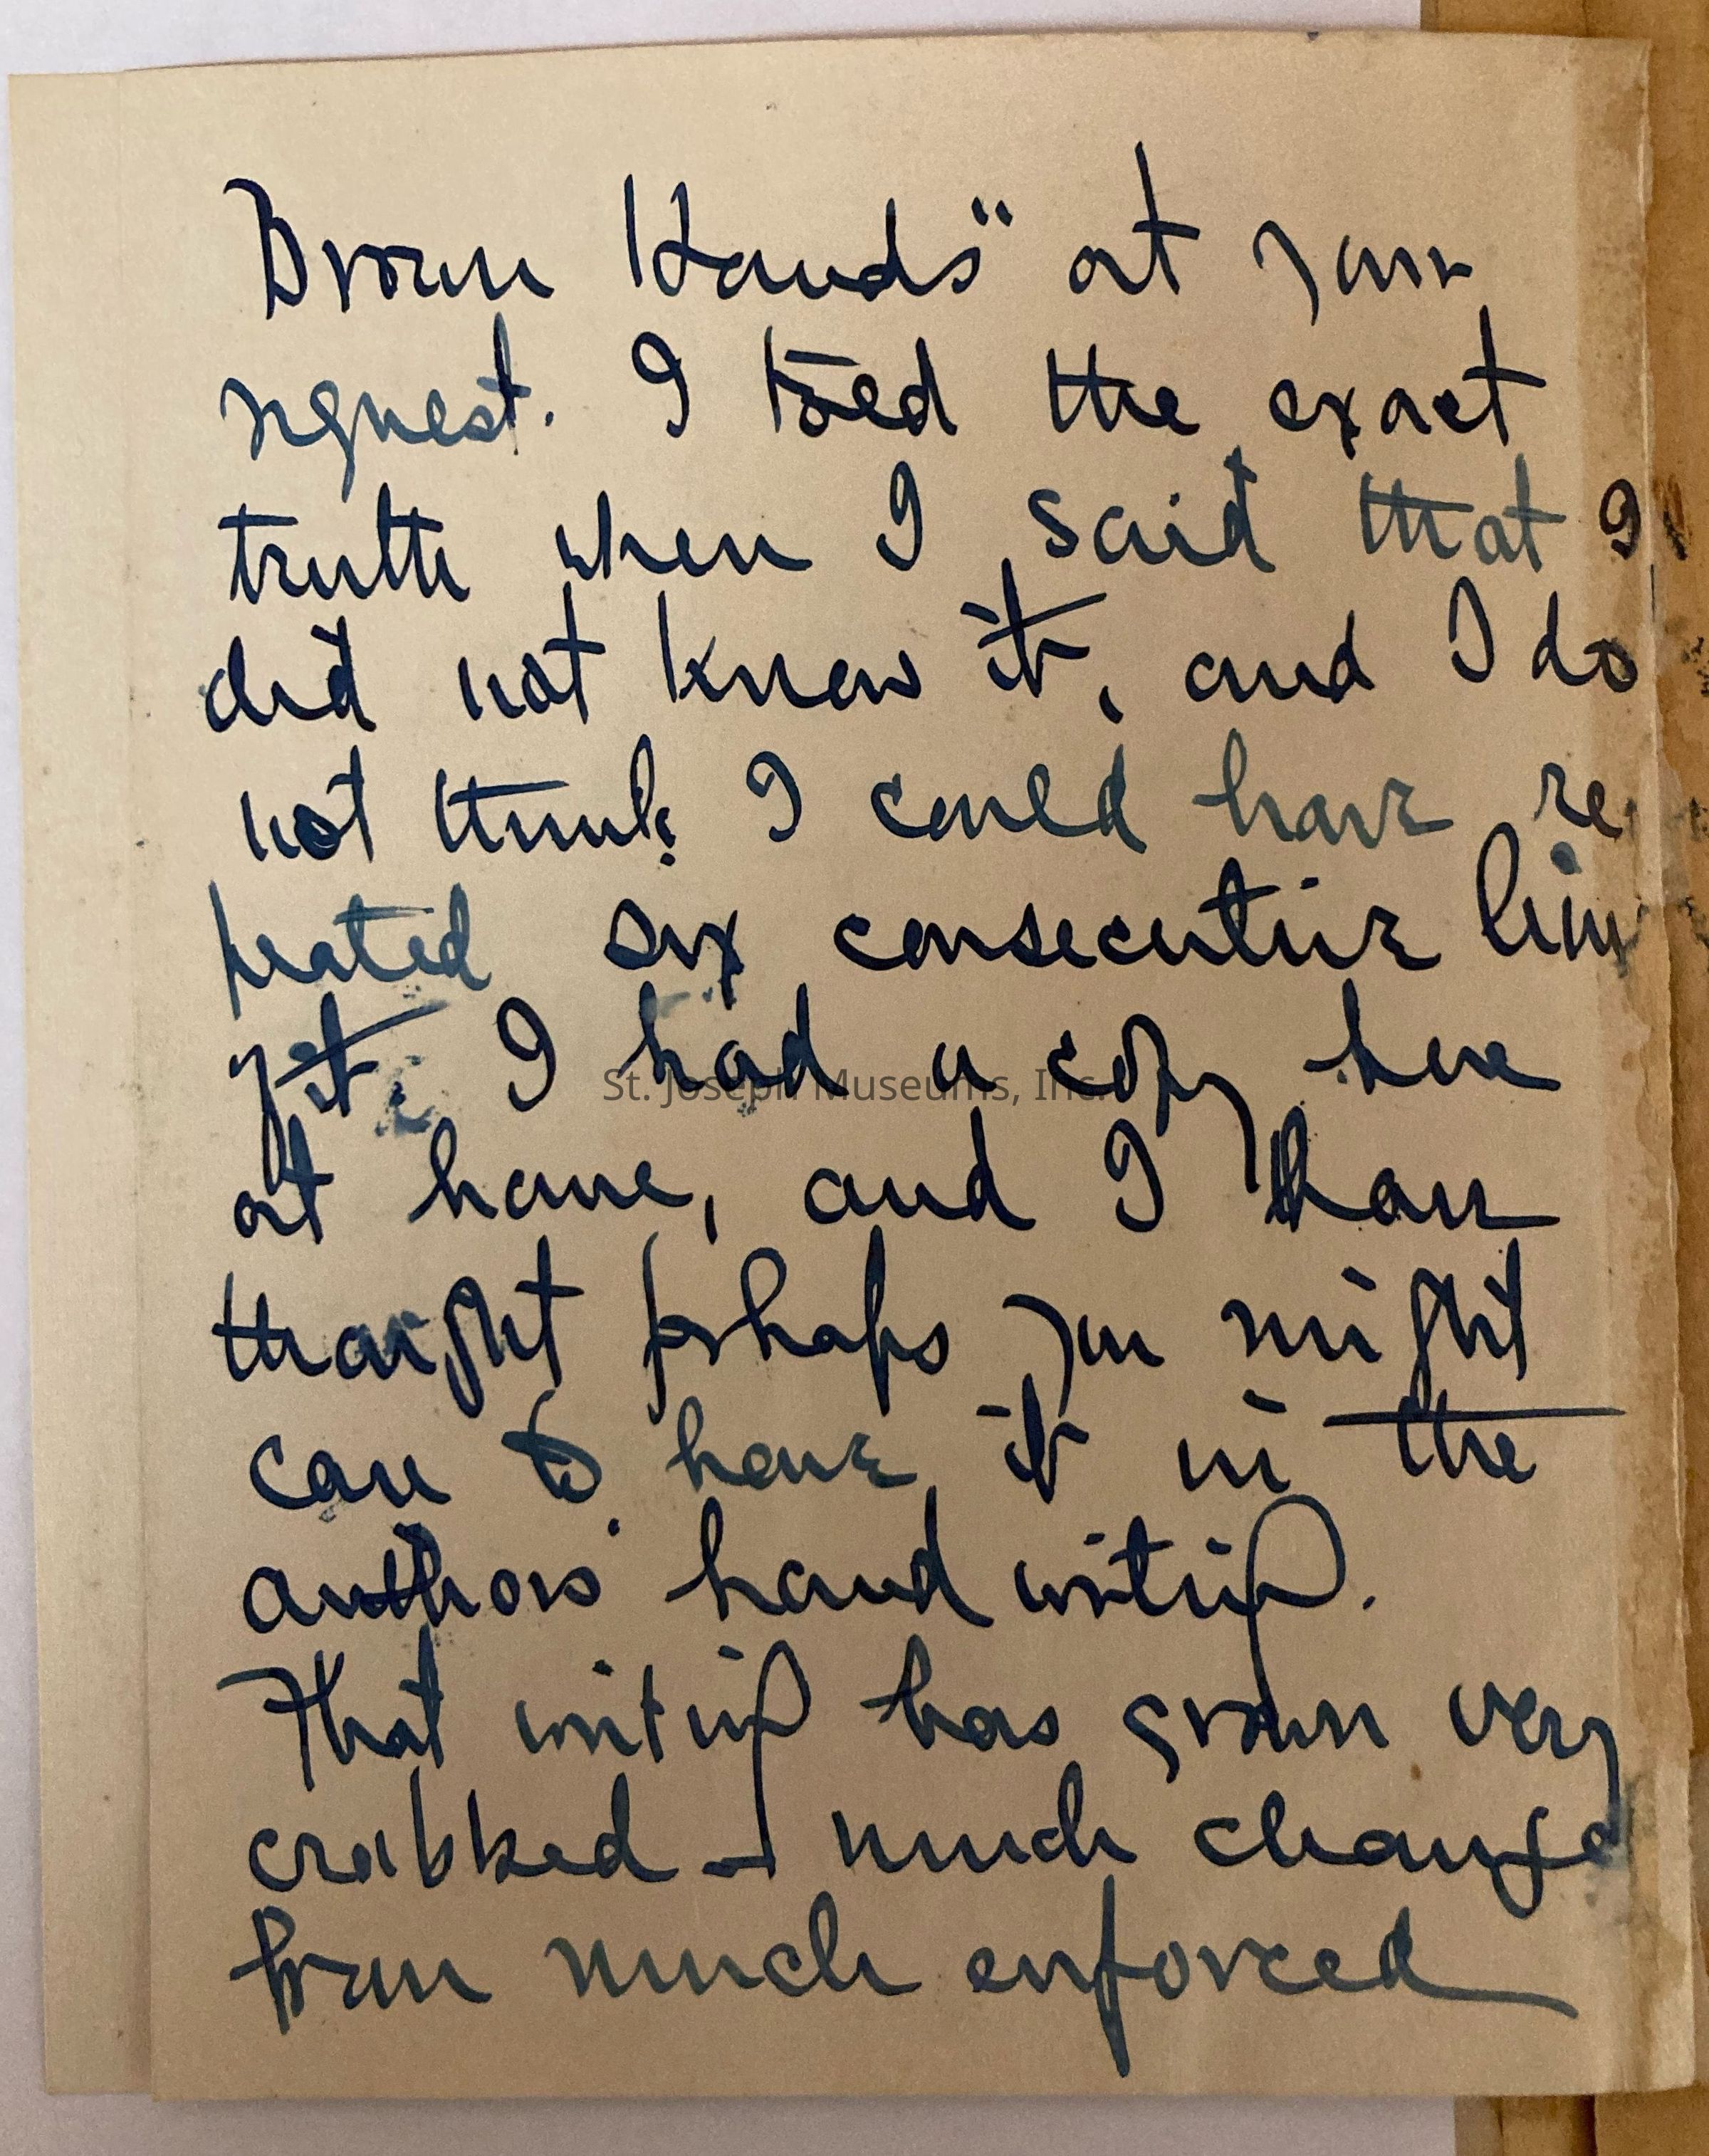 Brown Hands" at your
request. I told the exact
truth when I said that I
did not know it, and I do
not think I could have re
peated six consecutive lines
of it. I had a copy here
at home, and I have
thought perhaps you might
care to have it in the
authors' hand writing.
That writing has grown very
crabbed – much changed
from much enforced
St. Joseph Museums, Inc.